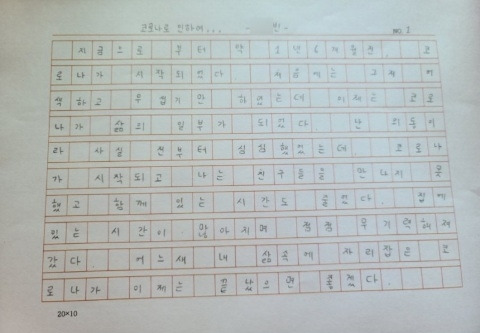 코로나로 인하여... - 빈 -
NO. 1
지금으로 부터 약 1년 6개월전, 코
로나가 시작되었다. 처음에는 그저
하고 무섭기만 하였는데 이제는 코로
나가 삶의 일부가 되었다. 나는 외동이
라 사실 전부터 심심했었는데 코로나
가 시작되고 나는 친구들을 만나지 못
했고 함께 있는 시간도 줄었다. 집에
있는 시간이 많아지며 점점 무기력해져
갔다. 어느새 내 삶속에 자리잡은 코
로나가 이제는 좋겠다.
20×10